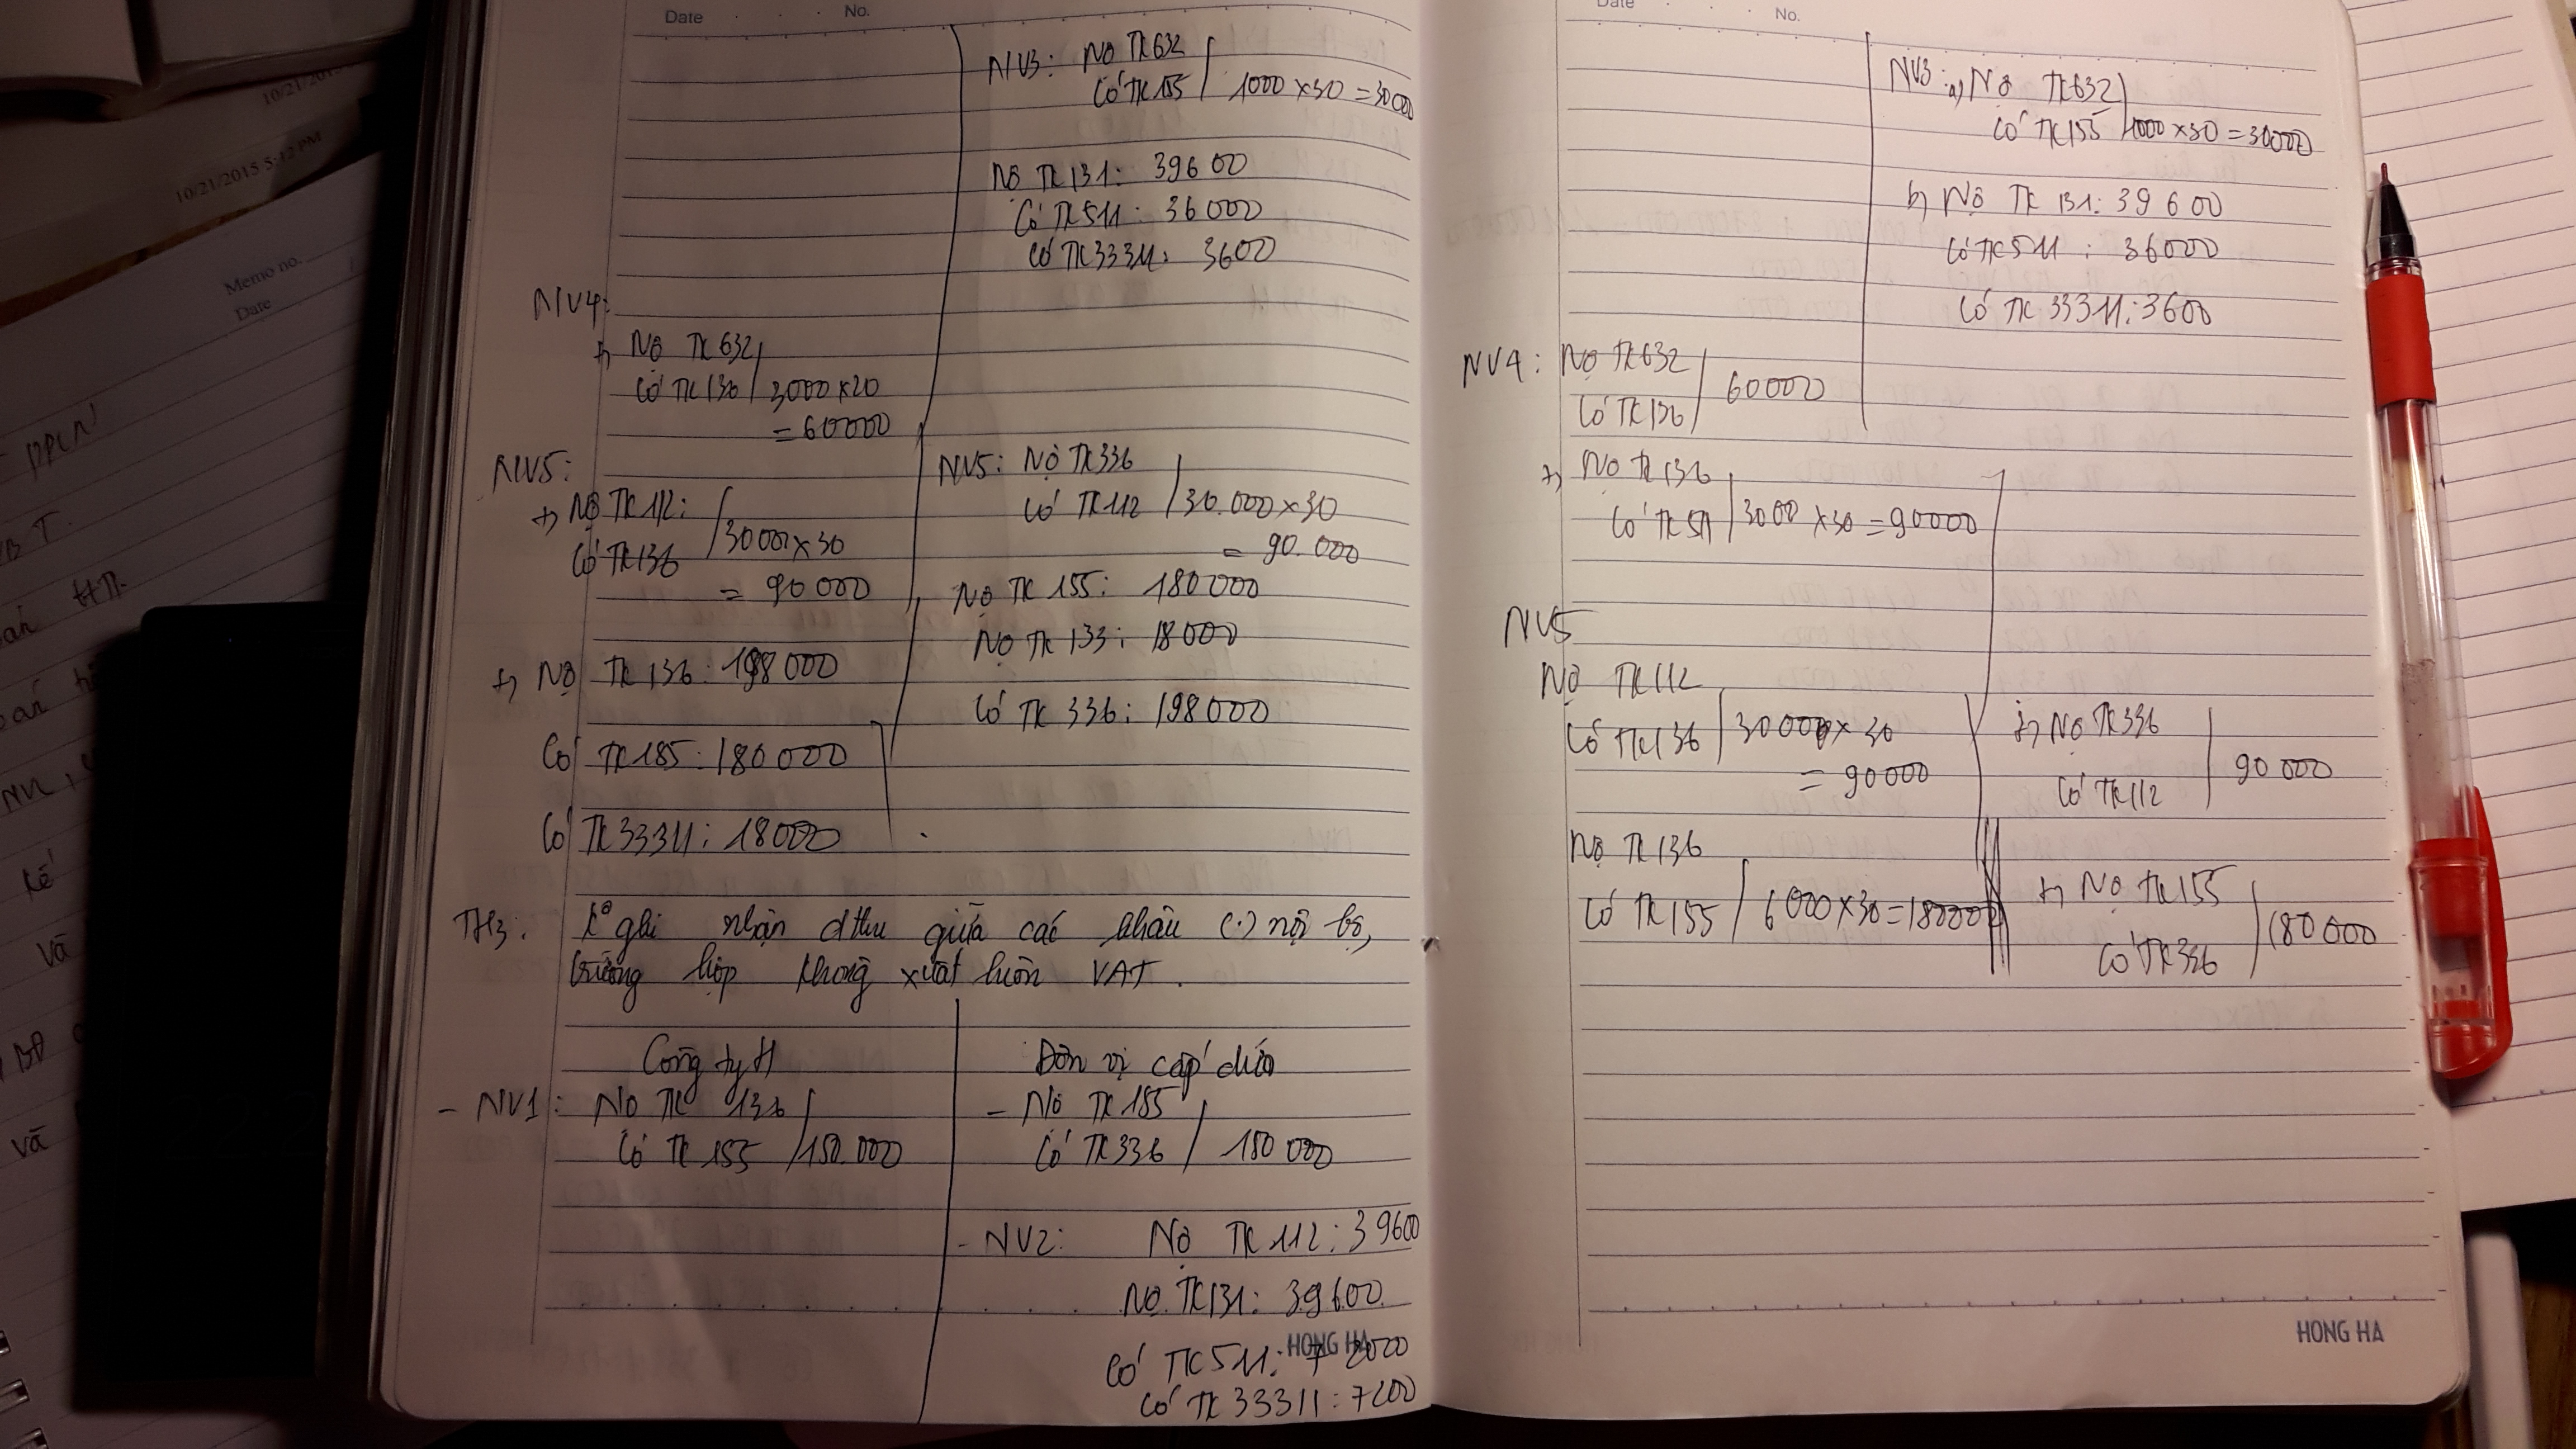 Date No.
NV3: Nợ TK 632
Có TK 155 / 1000 x 30 = 30000
Nợ TK 131: 39600
Có TK 511: 36000
Có TK 33311: 3600
NV4:
+) Nợ TK 632
Có TK 136 / 3000 x 20
= 60000
NV5:
+) Nợ TK 112:
Có TK 136 / 3000 x 30
= 90 000
+) Nợ TK 136: 198 000
Có TK 155: 180 000
Có TK 33311: 18000
NV5: Nợ TK 336
Có TK 112 / 30.000 x 30
= 90.000
Nợ TK 155: 180000
Nợ TK 133: 18000
Có TK 336: 198000
TH3: ko ghi nhận dthu giữa các khâu (.) nội bộ,
trường hợp không xuất luôn VAT.
Công ty H
- NV1: Nợ TK 136
Có TK 155 / 150.000
Đơn vị cấp dưới
- Nợ TK 155
Có TK 336 / 150 000
- NV2: Nợ TK 112: 39600
Nợ TK 131: 39600
Có TK 511: 72000
Có TK 33311: 7200
HONG HA
Date No.
NV3: a) Nợ TK 632
Có TK 155 / 1000 x 30 = 30000
b) Nợ TK 131: 39 600
Có TK 511: 36000
Có TK 33311: 3600
NV4: Nợ TK 632
Có TK 136 / 60000
+) Nợ TK 136
Có TK 511 / 3000 x 30 = 90000
NV5
Nợ TK 112
Có TK 136 / 30000 x 30
= 90000
Nợ TK 136
Có TK 155 / 6000 x 30 = 180000
+) Nợ TK 336
Có TK 112 / 90 000
+) Nợ TK 155
Có TK 336 / 180 000
HONG HA
10/21/2015
10/21/2015 5:12 PM
Memo no.
Date